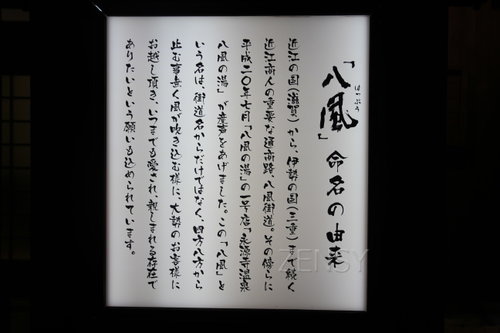 「八風」命名の由来
はっぷう
近江の国(滋賀)から、伊勢の国(三重)まで続く
近江商人の重要な通商路、八風街道。その傍らに
平成二〇年七月「八風の湯」の一号店「永源寺温泉
八風の湯」が産声をあげました。この「八風」と
いう名は、街道名からだけではなく、四方八方から
止む事無く風が吹き込む様に、大勢のお客様に
お越し頂き、いつまでも愛され、親しまれる存在で
ありたいという願いも込められています。
ZENSY